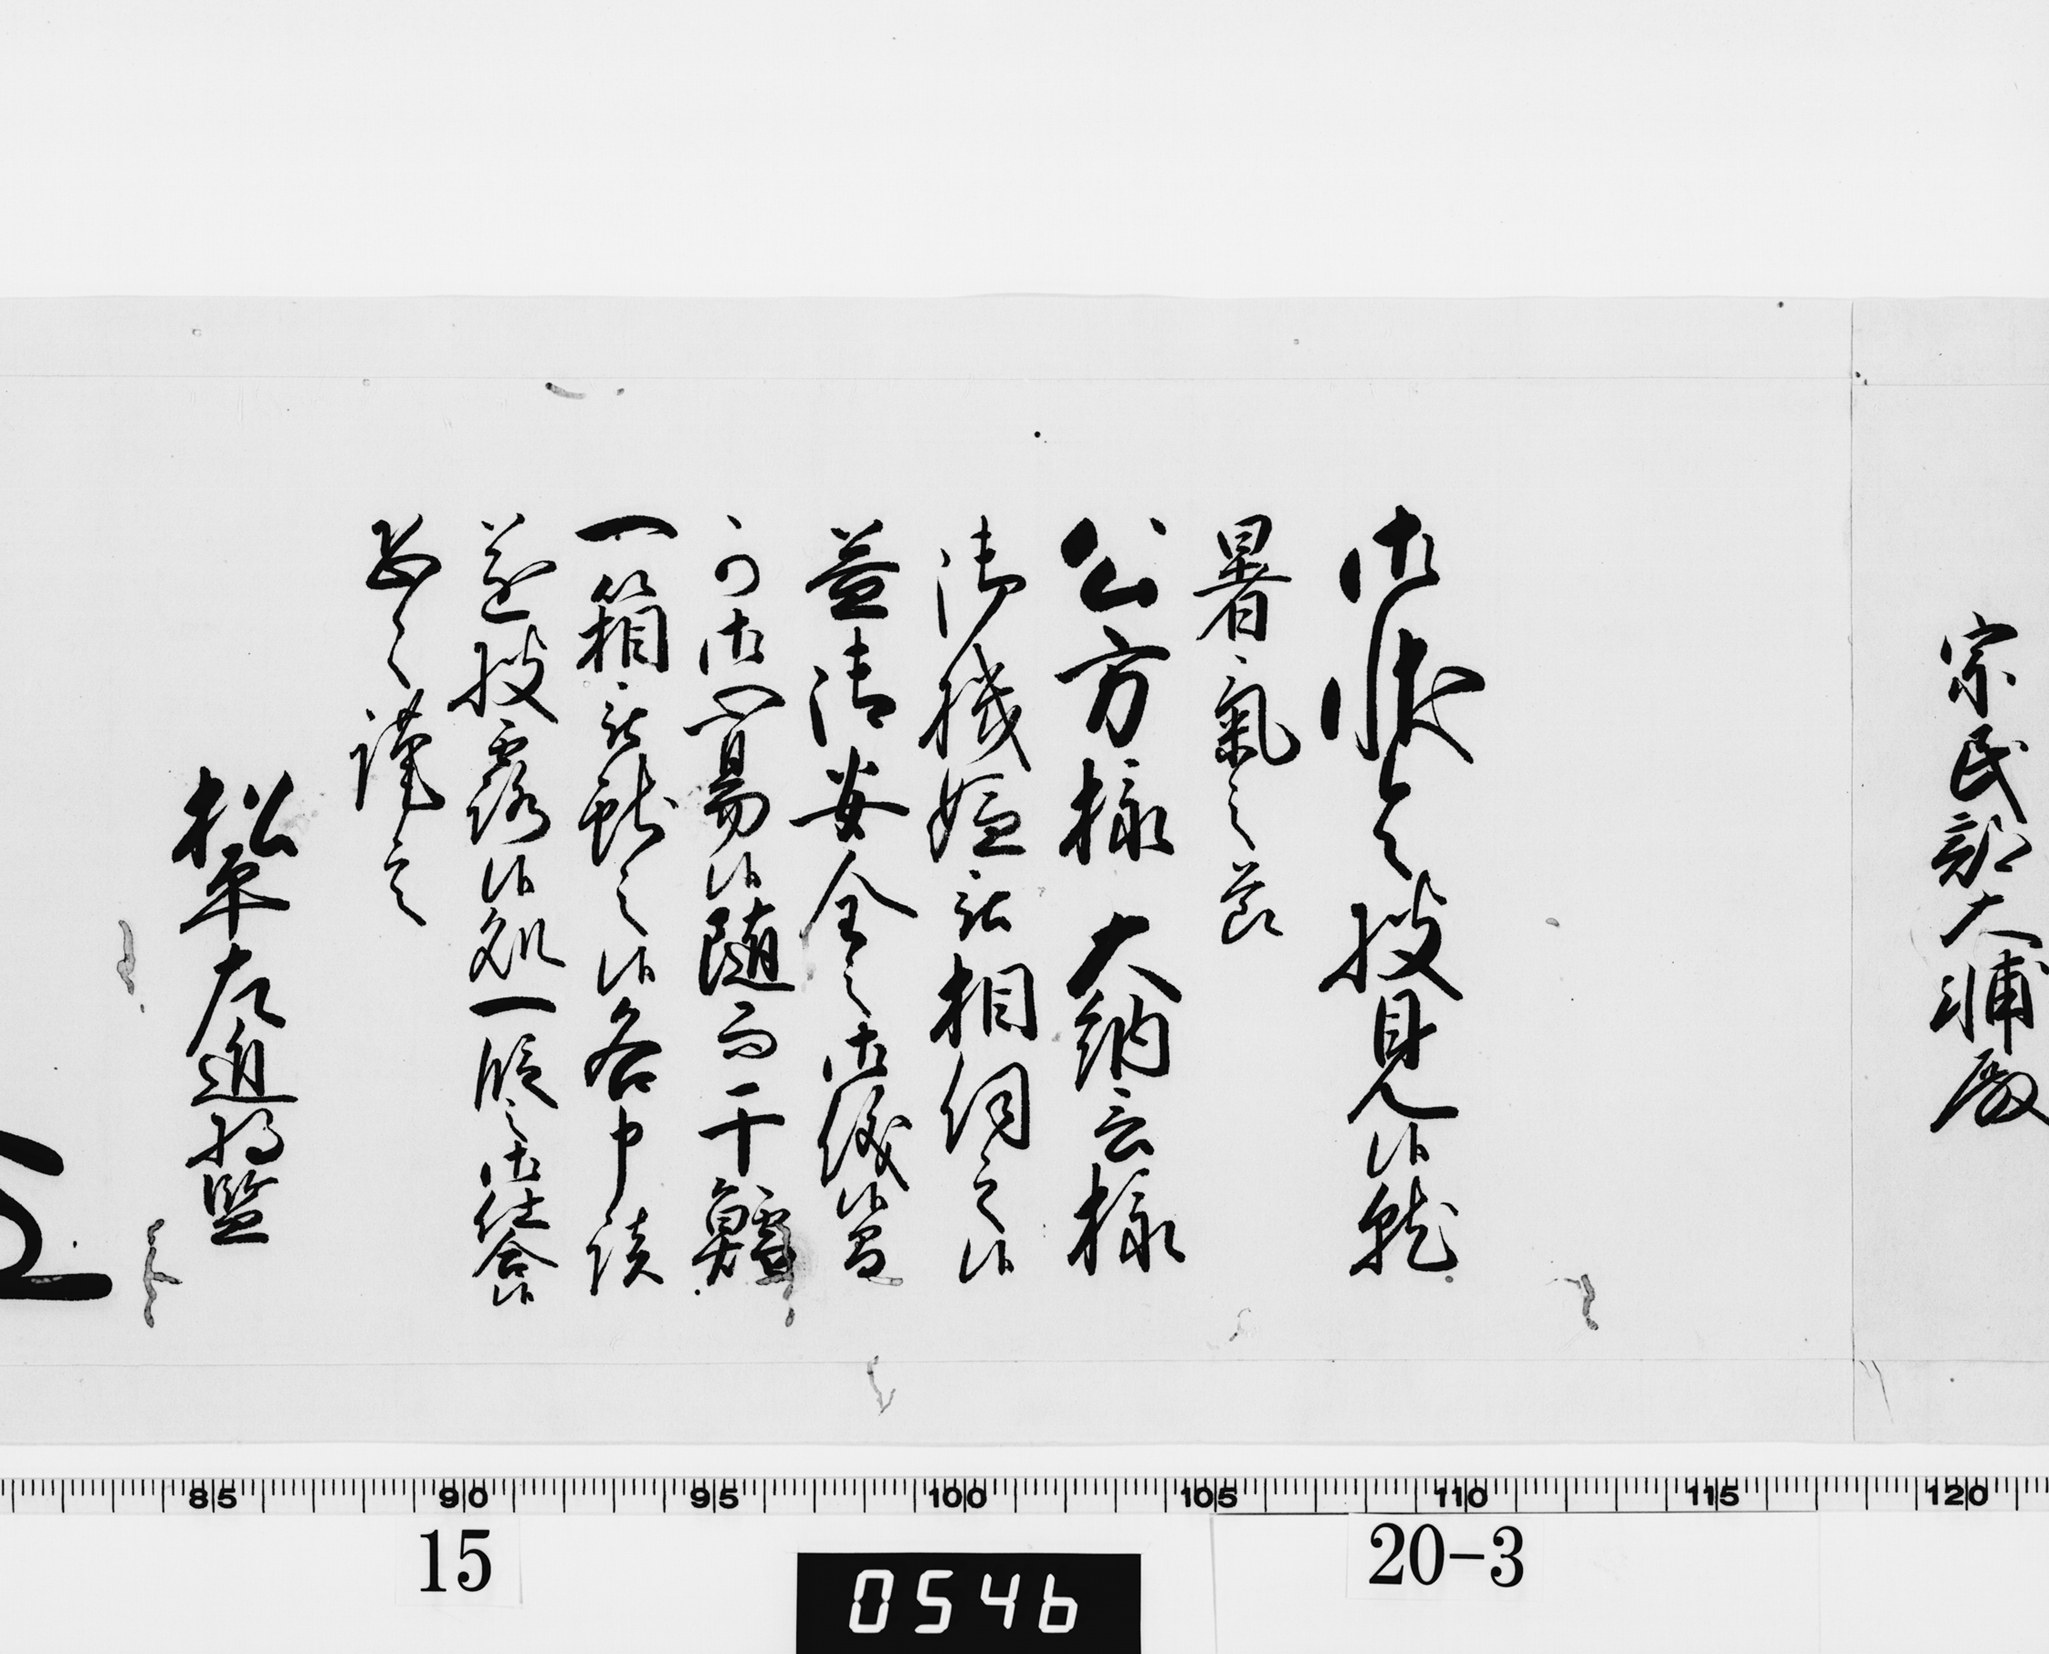 宗民部大輔殿
御状令披見候就
暑氣之節
公方様 大納言様
御機嫌被相伺之候
益御安全之御儀候間
可御心易候随而干鱈
一箱被献之候各申談
遂披露候処一段之御仕合候
恐々謹言
松平左近将監
85 90 95 100 105 110 115 120
15
20-3
0546